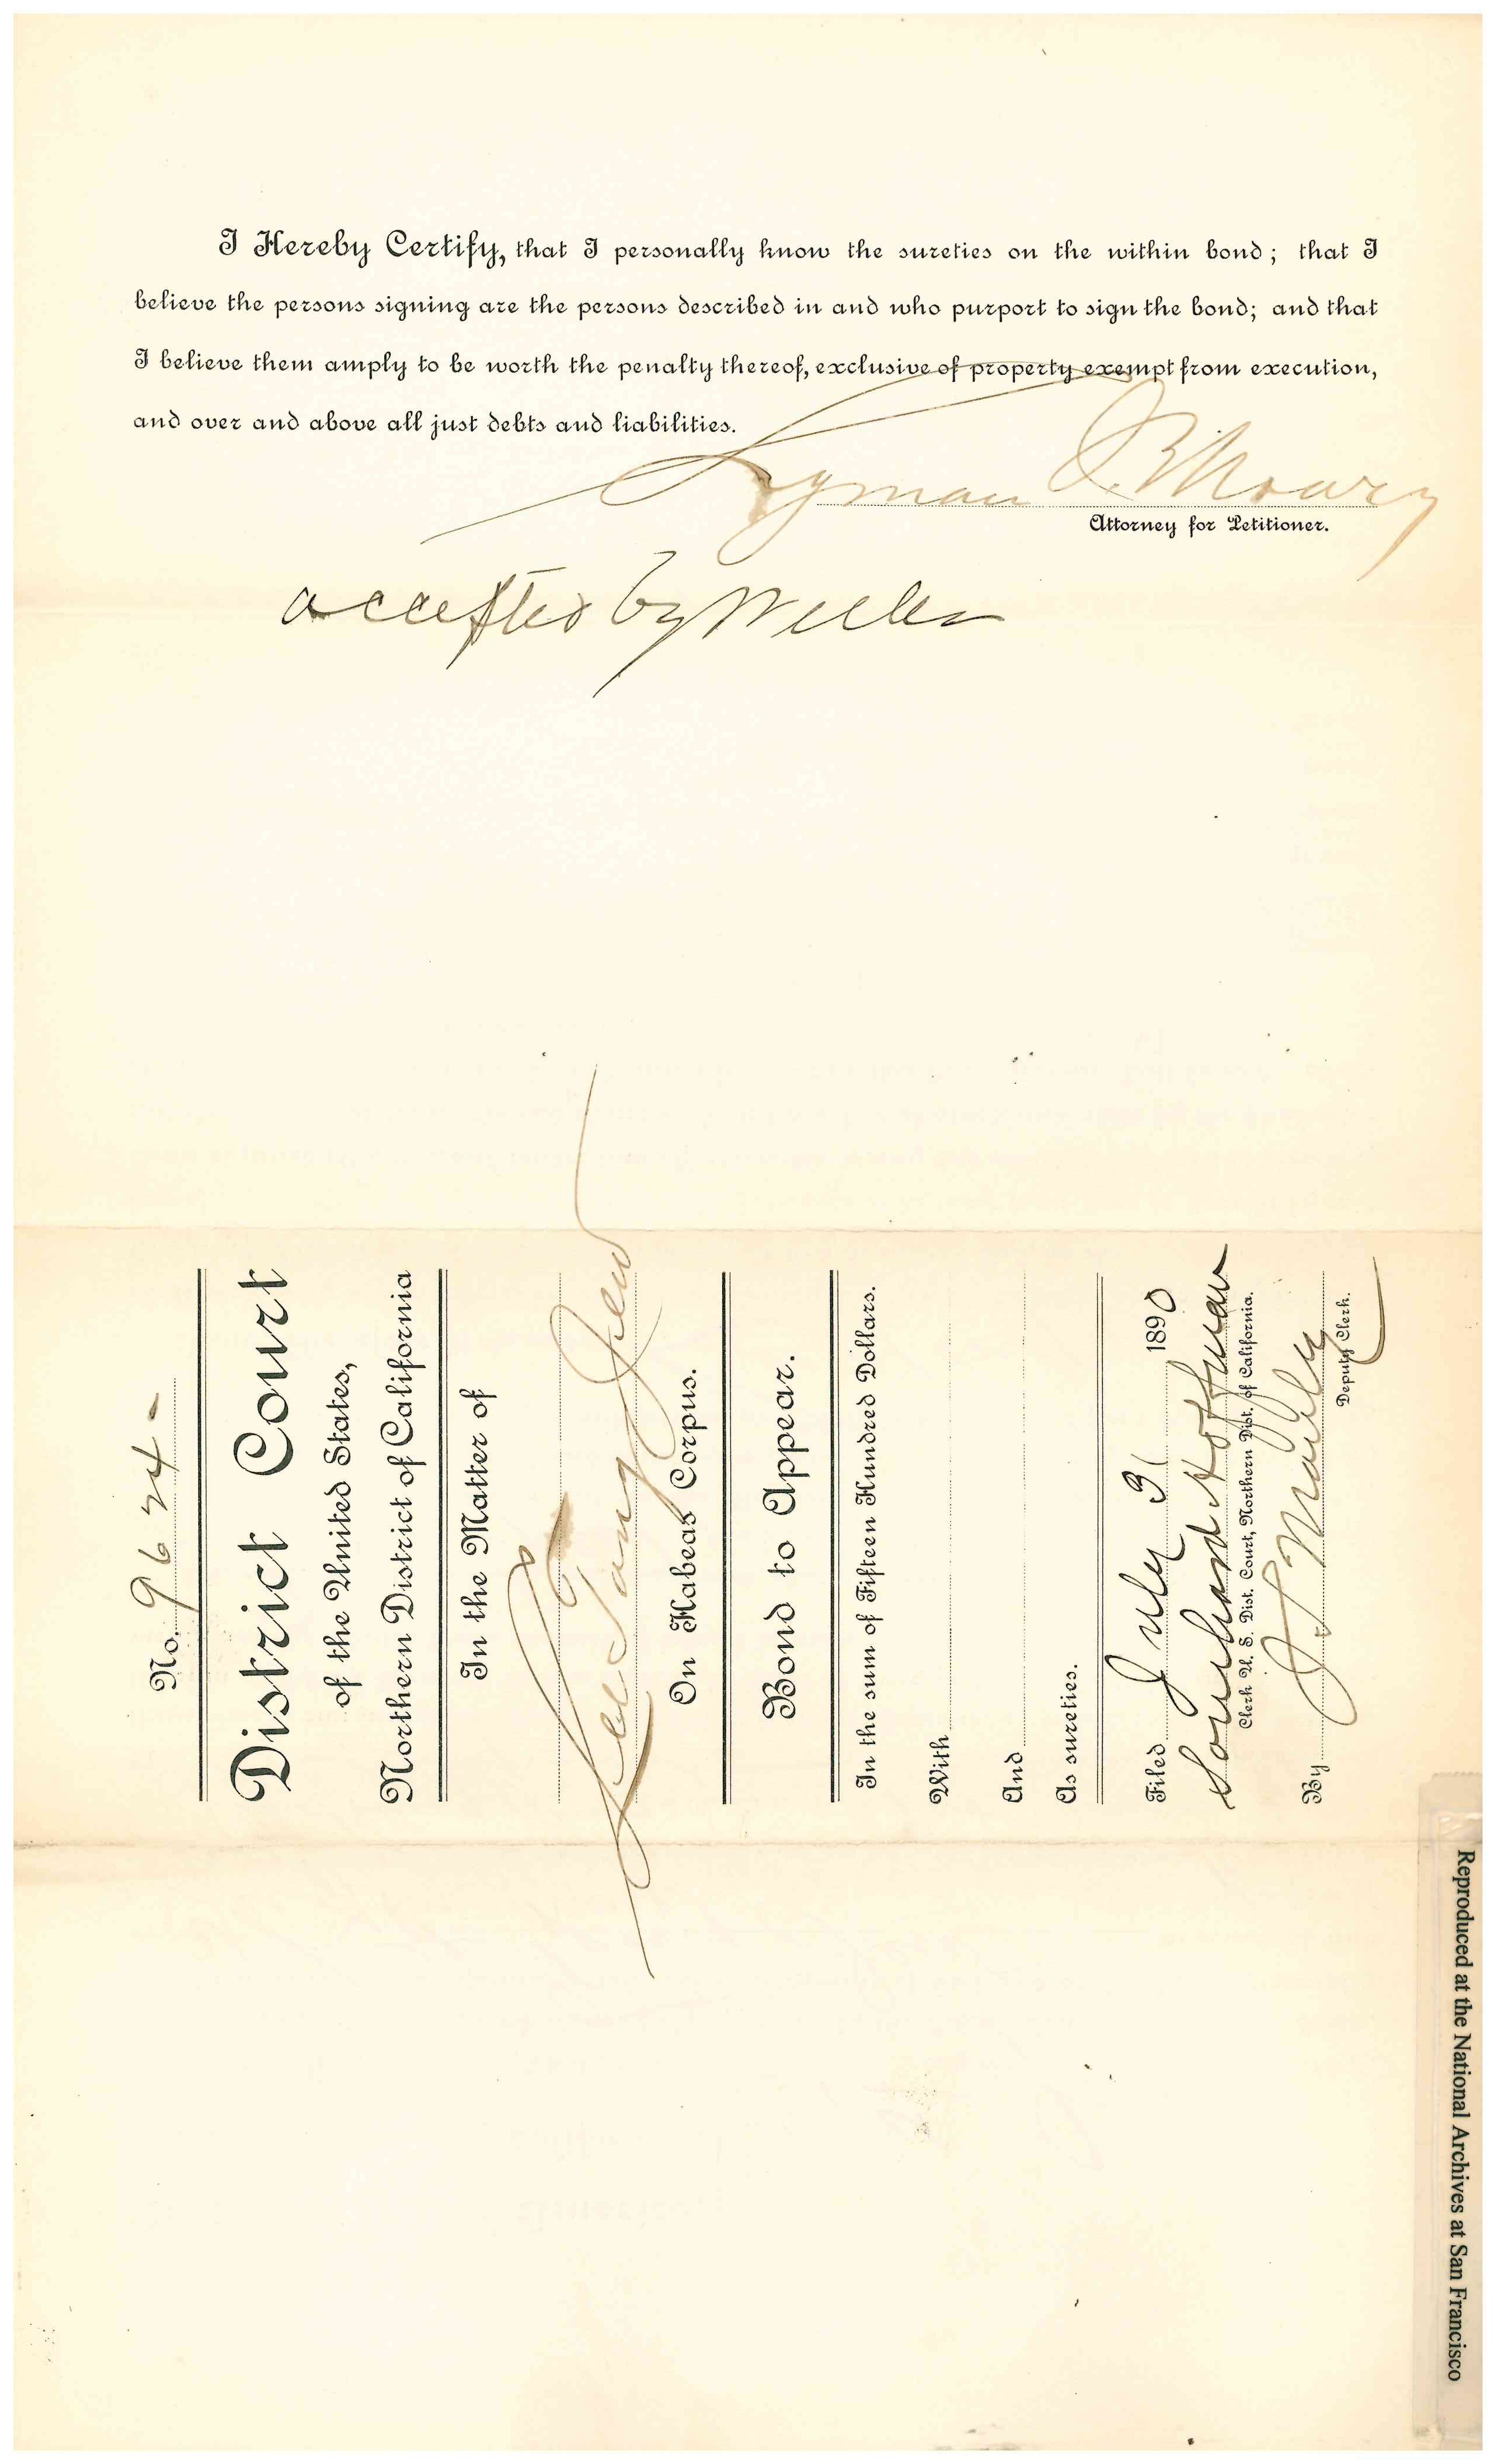 I Hereby Certify, that I personally know the sureties on the within bond; that I
believe the persons signing are the persons described in and who purport to sign the bond; and that
I believe them amply to be worth the penalty thereof, exclusive of property exempt from execution,
and over and above all just debts and liabilities.
Lyman I. Mowry
Attorney for Petitioner.
accepted by
No. 9624
District Court
of the United States,
Northern District of California
In the Matter of
Lee Tang Jew
On Habeas Corpus.
Bond to Appear.
In the sum of Fifteen Hundred Dollars.
With
And
As sureties.
Filed July 31 1890
Southard Hoffman
Clerk U. S. Dist. Court, Northern Dist. of California.
By J. S. Manley
Deputy Clerk.
Reproduced at the National Archives at San Francisco